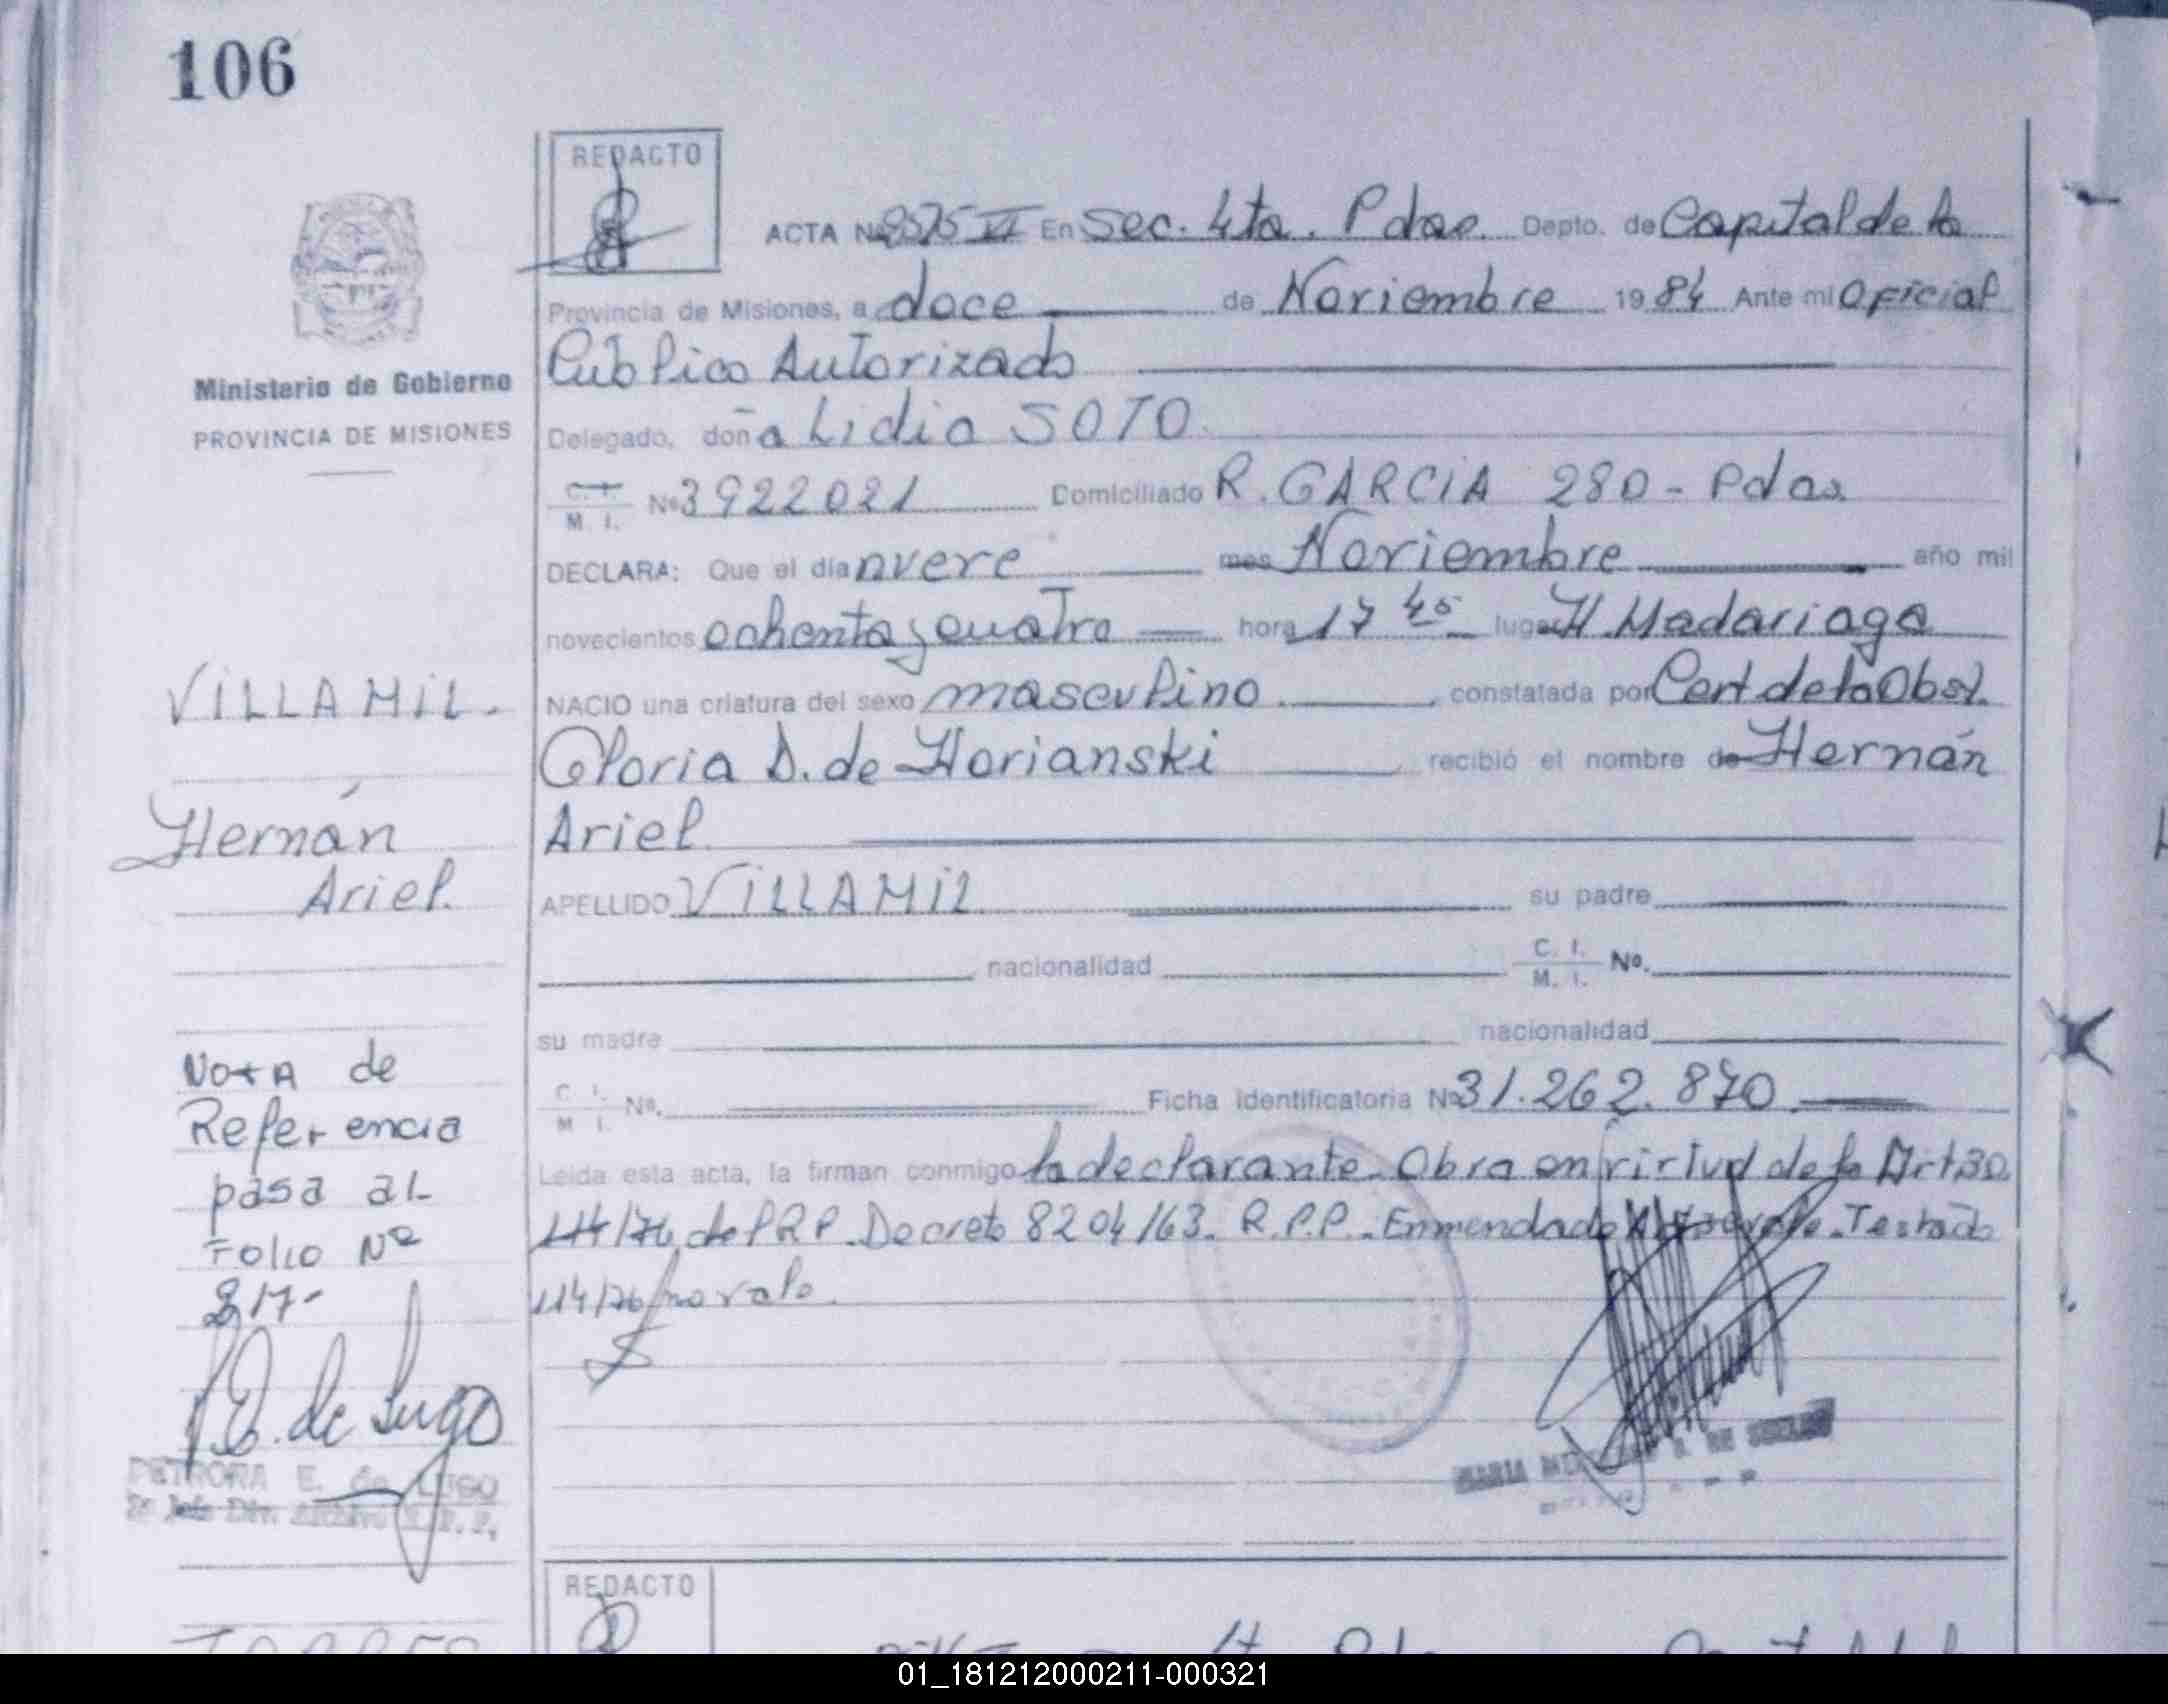 106
REDACTO
ACTA Nº 2575 VI En Sec. 4ta. Pdas. Depto. de Capital de la
Provincia de Misiones, a doce de Noviembre 1984 Ante mi Oficial
Público Autorizado
Ministerio de Gobierno
PROVINCIA DE MISIONES
Delegado, doña Lidia SOTO
C. I. M. I. Nº 3922021 Domiciliado R. GARCIA 280 - Pdas.
DECLARA: Que el día nueve mes Noviembre año mil
novecientos ochenta y cuatro hora 17 45 lugar H. Madariaga
VILLAMIL.
NACIO una criatura del sexo masculino constatada por Cert de la Obst.
Gloria D. de Horianski recibió el nombre de Hernán
Hernán
Ariel
Ariel.
APELLIDO VILLAMIL su padre
nacionalidad C. I. M. I. Nº.
su madre nacionalidad
NOTA de
C. I. M. I. Nº. Ficha identificatoria Nº 31.262.870
Referencia
Leída esta acta, la firman conmigo la declarante. Obra en virtud de la Art 30
pasa al
114/76 del RP. Decreto 8204/63. R.P.P. Enmendado vale. Testado
Folio Nº
217-
114/76 no vale.
P.E. de Lugo
PETRONA E. de LUGO
2º Jefe Div. Archivo R. P. P.
MARIA DE
REDACTO
01_181212000211-000321